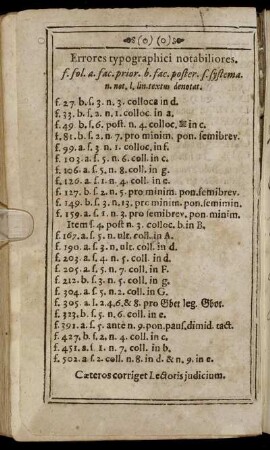 (o) (o)
Errores typographici notabiliores.
f. fol. a. fac. prior. b. fac. poster. s. systema.
n. not. l. lin. textus denotat.
f. 27. b. s. 3. n. 3. colloca in d.
f. 33. b. s. 2. n. 1. colloc. in a.
f. 49. b. s. 6. post. n. 4. colloc. in c.
f. 81. b. s. 2. n. 7. pro minim. pon. semibrev.
f. 99. a. s. 3. n. 1. colloc. in f.
f. 103. a. s. 5. n. 6. coll. in c.
f. 106. a. s. 5. n. 8. coll. in g.
f. 126. a. s. 1. n. 4. coll. in e.
f. 127. b. s. 2. n. 5. pro minim. pon. semibrev.
f. 149. b. s. 3. n. 13. pro minim. pon. semimin.
f. 159. a. s. 1. n. 3. pro semibrev. pon. minim.
Item s. 4. post n. 3. colloc. b in B.
f. 167. a. s. 5. n. ult. coll. in A.
f. 190. a. s. 3. n. ult. coll. in d.
f. 203. a. s. 4. n. 5. coll. in d.
f. 205. a. s. 5. n. 7. coll. in F.
f. 212. b. s. 3. n. 5. coll. in g.
f. 304. a. s. 5. n. 2. coll. in G.
f. 305. a. l. 2. 4. 6. & 8. pro Gbet leg. Gbot.
f. 323. b. s. 5. n. 6. coll. in e.
f. 391. a. s. 5. ante n. 9. pon. paus. dimid. tact.
f. 427. b. s. 2. n. 4. coll. in c.
f. 451. a. s. 1. n. 7. coll. in b.
f. 502. a s. 2. coll. n. 8. in d. & n. 9. in e.
Cæteros corriget Lectoris judicium.